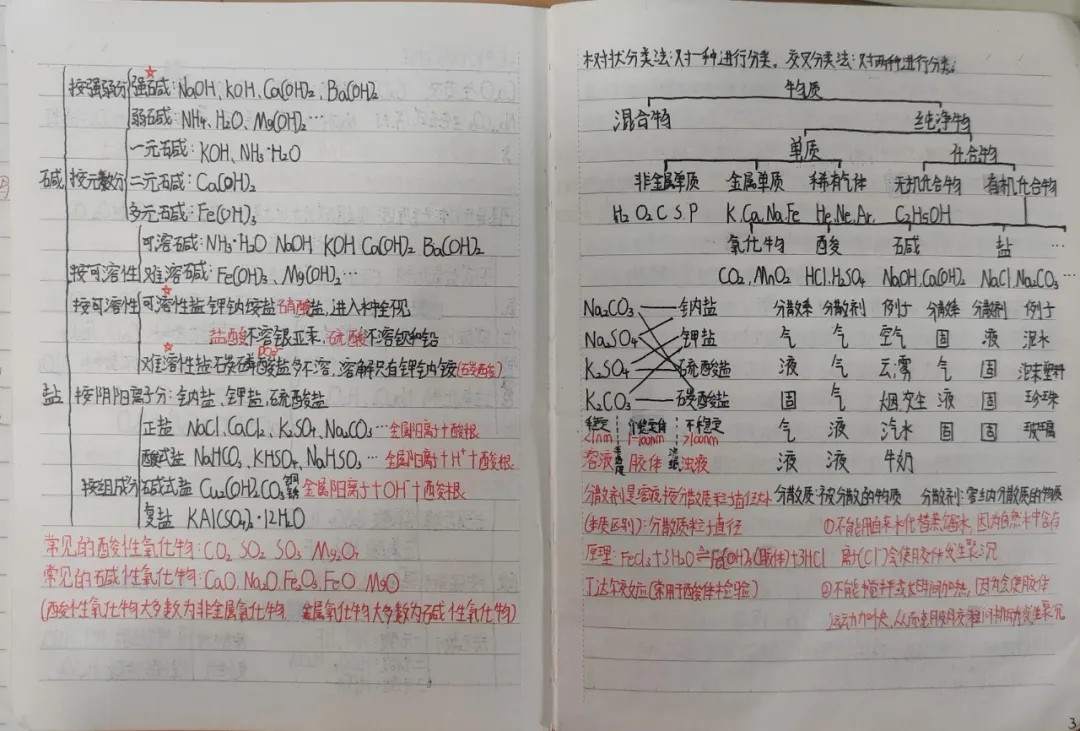 按强弱分 强碱:NaOH、KOH、Ca(OH)2、Ba(OH)2
弱碱:NH4、H2O、Mg(OH)2…
一元石碱:KOH、NH3·H2O
碱 按元数分 二元石碱:Ca(OH)2
多元石碱:Fe(OH)3
可溶碱:NH3·H2O NaOH KOH Ca(OH)2 Ba(OH)2
按可溶性 难溶碱:Fe(OH)3、Mg(OH)2…
按可溶性 可溶性盐 钾钠铵盐硝酸盐,进入水中全不见
盐酸不溶银亚汞,硫酸不溶钡和铅
难溶性盐 碳磷酸盐多不溶,溶解只有钾钠铵
盐 按阴阳离子分:钠盐、钾盐、硫酸盐
正盐 NaCl、CaCl2、K2SO4、Na2CO3…金属阳离子+酸根
酸式盐 NaHCO3、KHSO4、NaHSO3…金属阳离子+H⁺+酸根
按组成分 碱式盐 Cu2(OH)2CO3 金属阳离子+OH⁻+酸根
复盐 KAl(SO4)2·12H2O
常见的酸性氧化物:CO2 SO2 SO3 Mn2O7
常见的碱性氧化物:CaO Na2O Fe2O3 FeO MgO
(酸性氧化物大多数为非金属氧化物 金属氧化物大多数为碱性氧化物)
树状分类法:对一种进行分类。交叉分类法:对两种进行分类。
物质
混合物 纯净物
单质 化合物
非金属单质 金属单质 稀有气体 无机化合物 有机化合物
H2 O2 C S P K、Ca、Na、Fe He、Ne、Ar、 C2H5OH
氧化物 酸 碱 盐 …
CO2、MnO2 HCl、H2SO4 NaOH、Ca(OH)2 NaCl、Na2CO3…
Na2CO3 钠盐 分散系 分散剂 例子 分散系 分散剂 例子
NaSO4 钾盐 气 气 空气 固 液 泥水
K2SO4 硫酸盐 液 气 云、雾 气 固 泡沫塑料
K2CO3 碳酸盐 固 气 烟、灰尘 液 固 珍珠
稳定 介稳定 不稳定 气 液 汽水 固 固 玻璃
<1nm 1-100nm >100nm
溶液 胶体 浊液 液 液 牛奶
分散质:被分散的物质 分散剂:容纳分散质的物质
(本质区别):分散质粒子直径 ①不能用自来水代替蒸馏水,因为自来水中含有
原理:FeCl3+3H2O⇌Fe(OH)3(胶体)+3HCl 离(Cl⁻)会使胶体发生聚沉
丁达尔效应(常用于胶体检验) ②不能搅拌或长时间加热,因为会使胶体
运动加快,从而
3